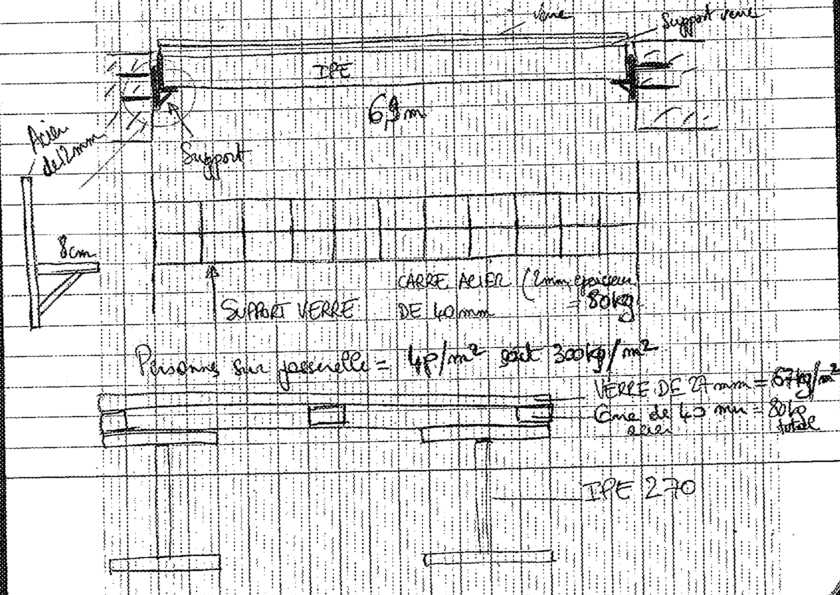 verre
Support verre
IPE
6,9m
Acier
de 12mm
Support
8cm
SUPPORT VERRE
CARRE ACIER (2mm epaisseur
DE 40mm = 80kg
Personnes sur passerelle = 4p/m² soit 300kg/m²
VERRE DE 27mm = 67kg/m²
Carre de 40 mm = 80kg
acier total
IPE 270